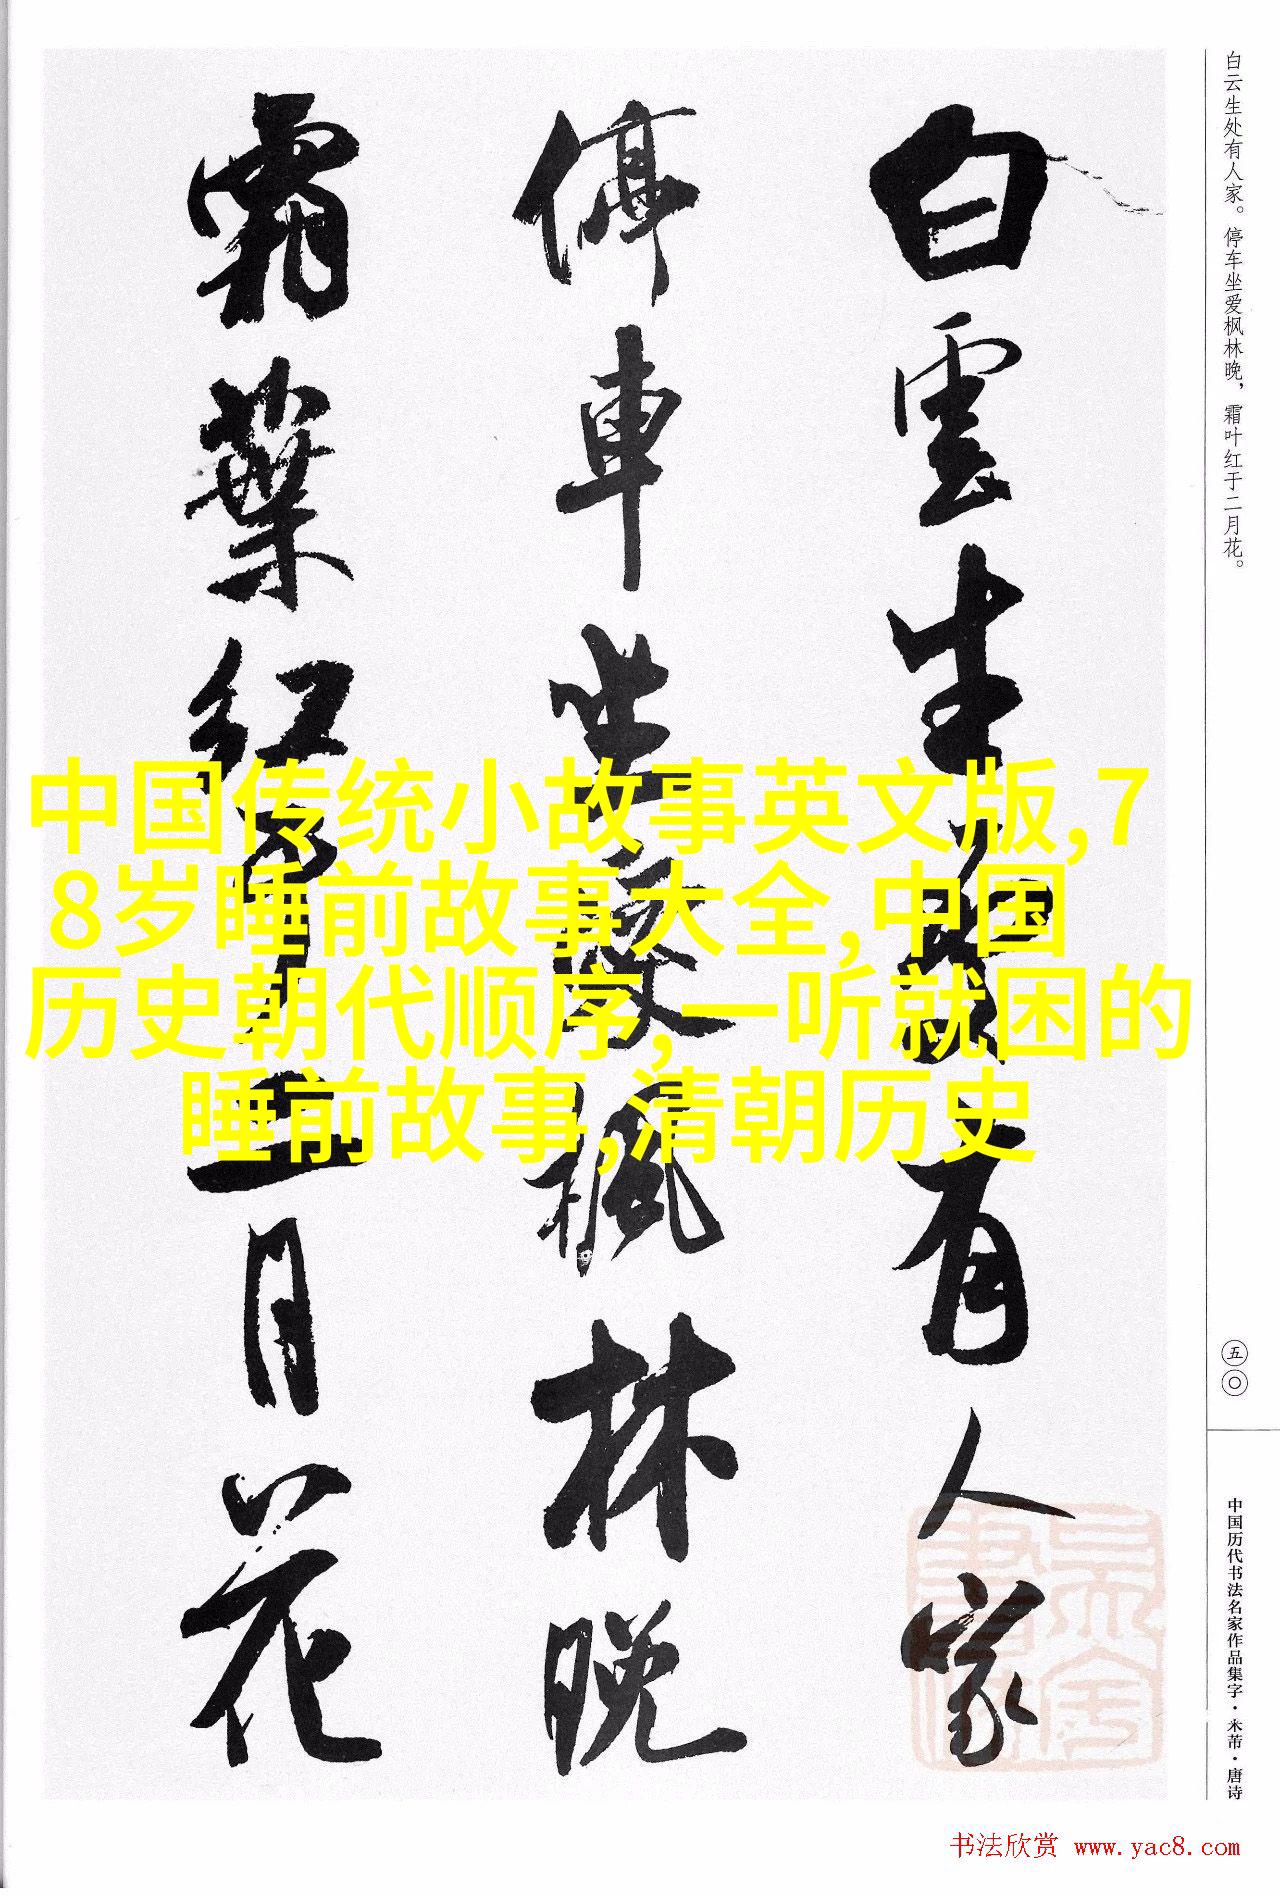 白云生处有人家。停车坐爱枫林晚，霜叶红于二月花。
白雲生處有人家
停車坐愛楓林晚
霜葉紅于二月花
中国传统小故事英文版,7
8岁睡前故事大全,中国
历史朝代顺序,一听就困的
睡前故事,清朝历史
五〇
中国历代书法名家作品集字·米芾·唐诗
书法欣赏 www.yac8.com